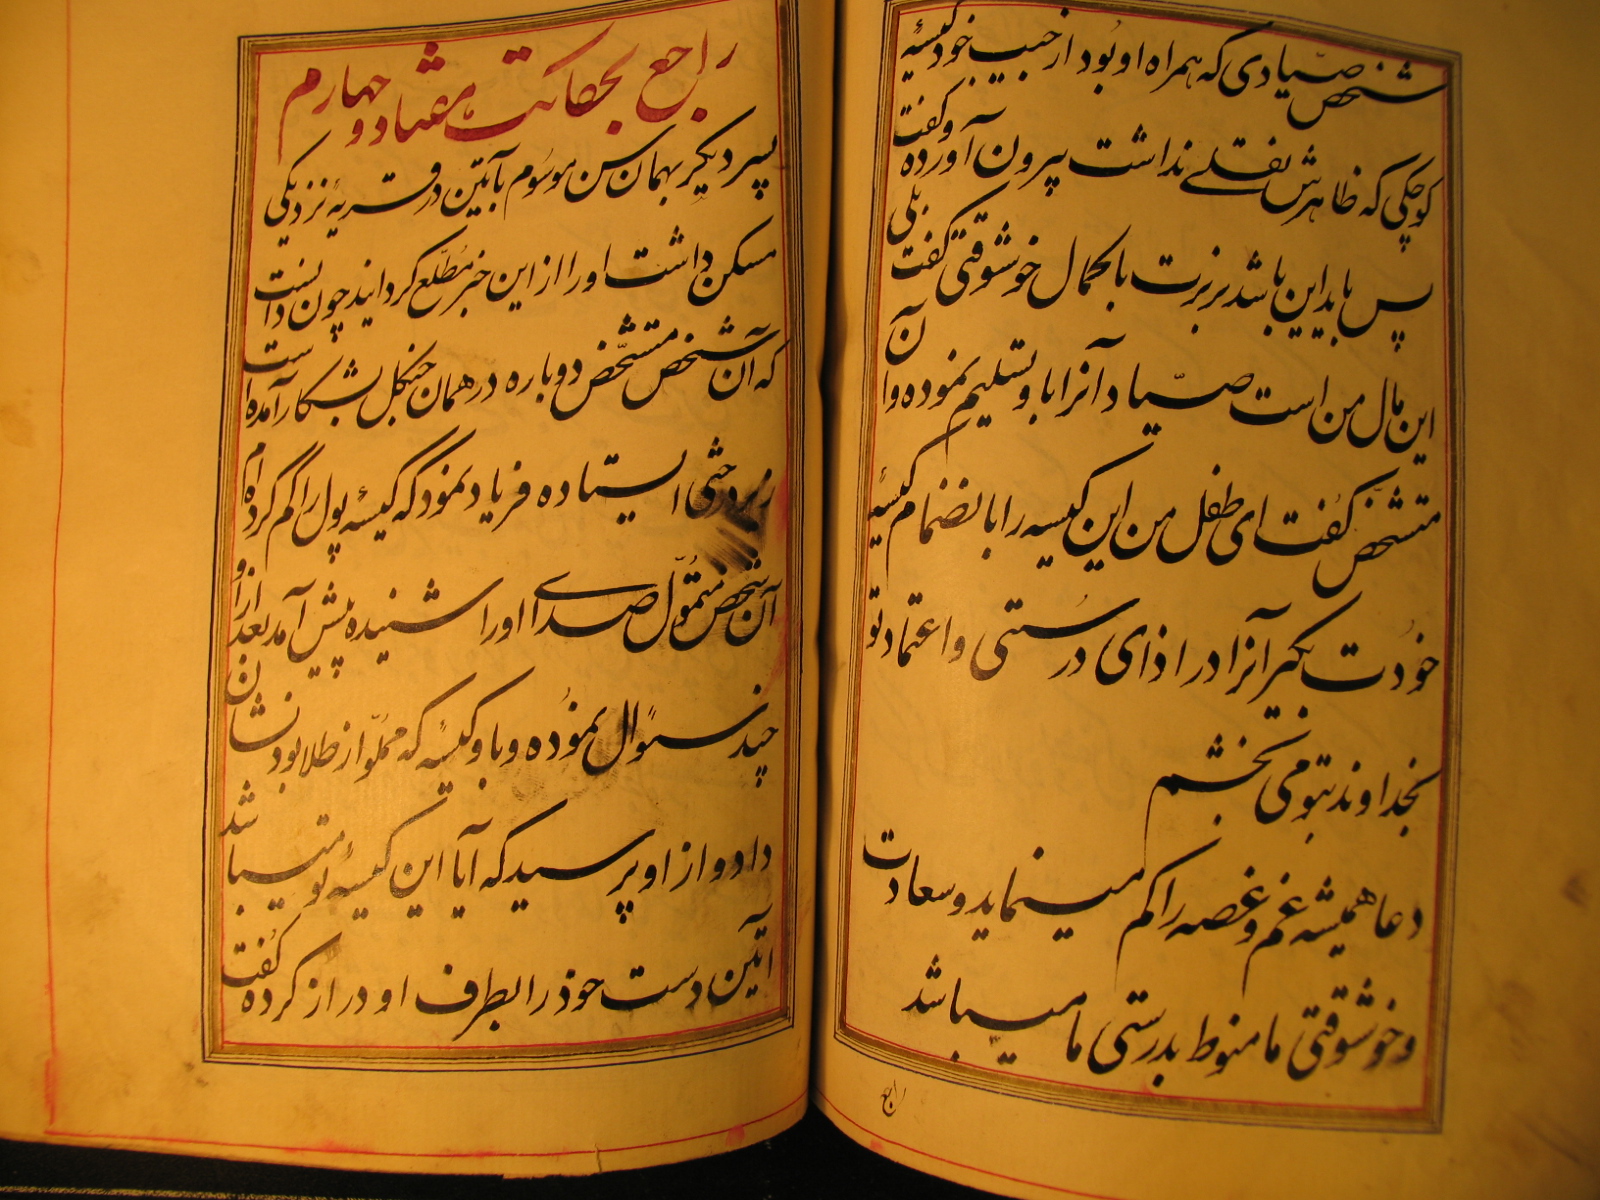 شخص صیادی که همراه او بود از جیب خود کیسهٔ
کوچکی که ظاهرش نقلے نداشت بیرون آورده و گفت
پس باید این باشد بزبرت با کمال خوشوقتی گفت بلی
این مال من است صیّاد آنرا باو تسلیم نموده و آن
متشخص گفت ای طفل من این کیسه را بانضمام کیسهٔ
خودت بگیر آنرا در اذای درستی و اعتماد تو
بخداوند بتو می بخشم
دعا همیشه غم و غصه را کم مینماید و سعادت
و خوشوقتی ما منوط بدرستی ما میباشد
راجع
راجع بحکایت هفتاد و چهارم
پسر دیگر بهمان سن موسوم بآیتن در قریهٔ نزدیکی
مسکن داشت او را از این خبر مطّلع گردانید چون دانست
که آن شخص متشخّص دوباره در همان جنگل بشکار آمده است
زیر درختی ایستاده فریاد نمود که کیسه پول را گم کرده ام
آن شخص متموّل صدای او را شنیده پیش آمد بعد از او
چند سئوال نموده و باو کیسهٔ که مملوّ از طلا بود نشان
داد و از او پرسید که آیا این کیسه تو میباشد
آیتن دست خود را بطرف او دراز کرده گفت